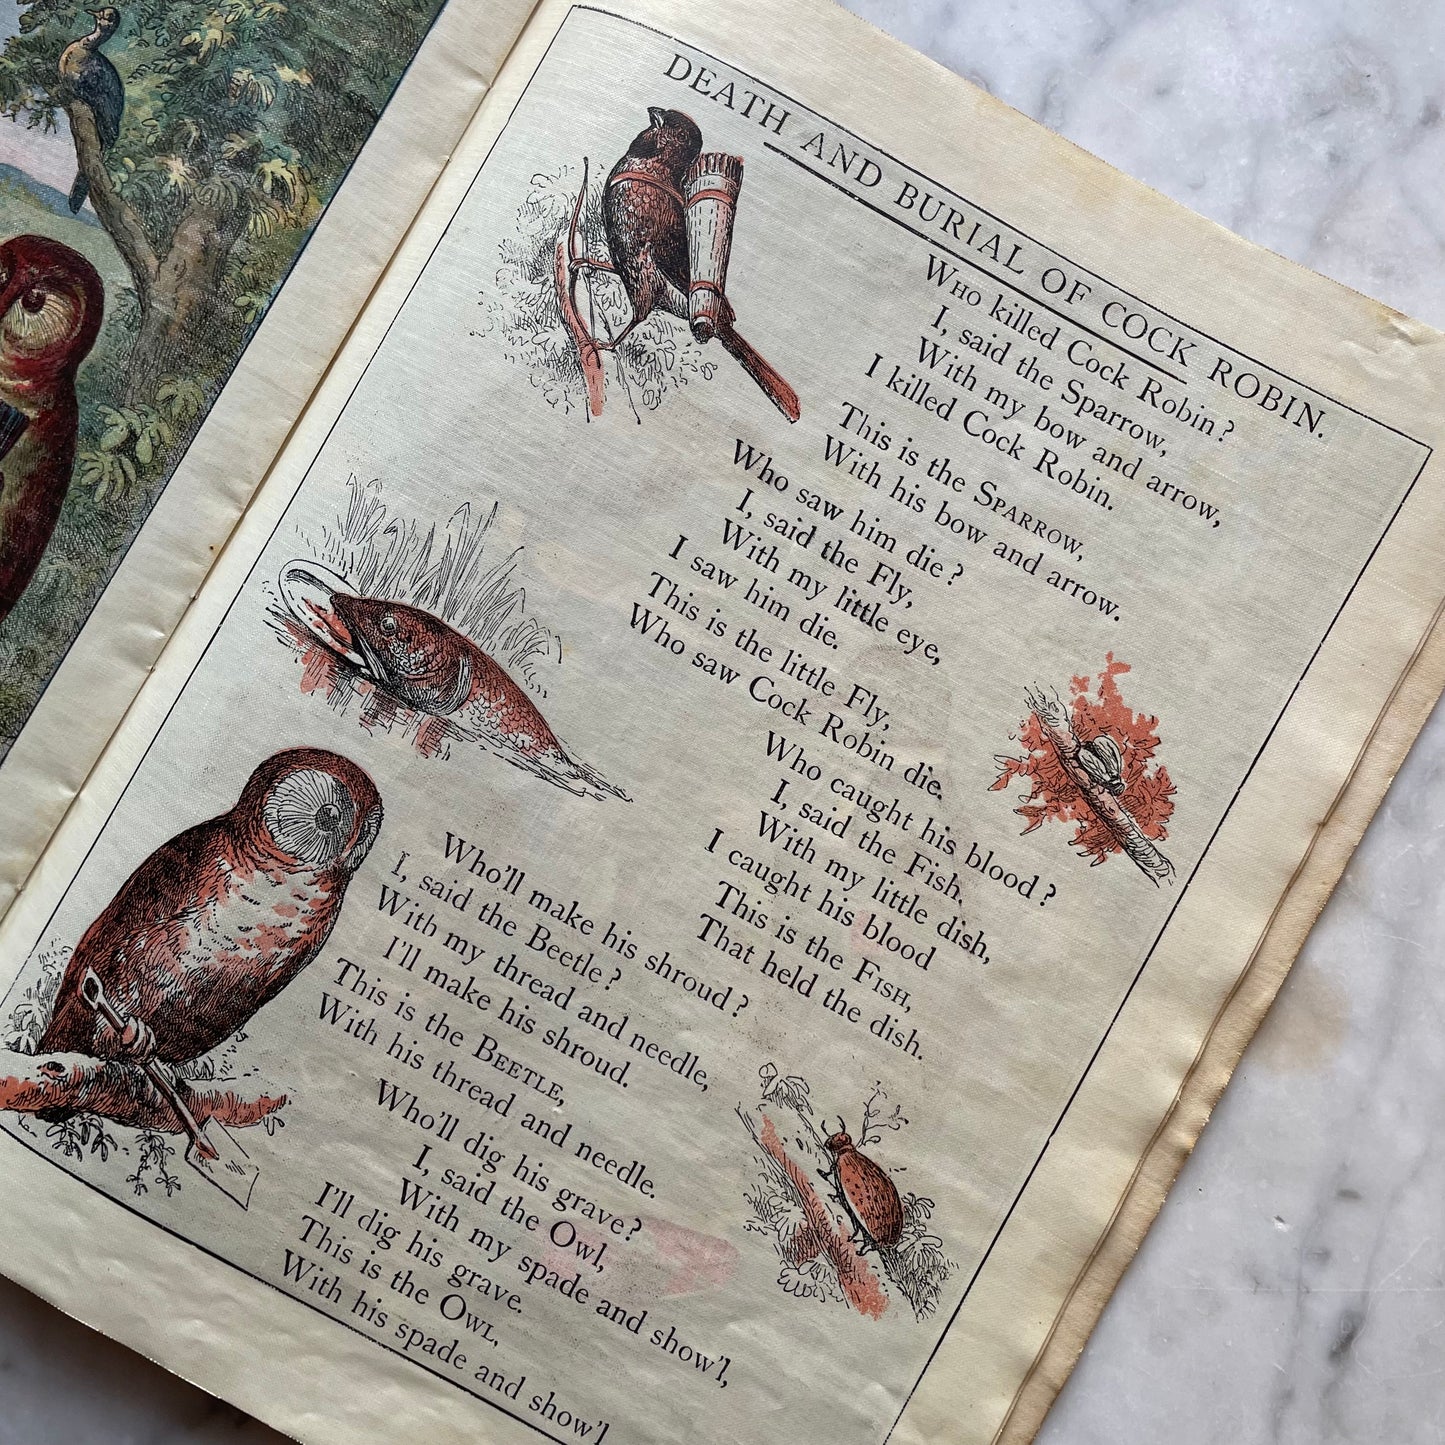 DEATH AND BURIAL OF COCK ROBIN.
WHO killed Cock Robin?
I, said the Sparrow,
With my bow and arrow,
I killed Cock Robin.
This is the SPARROW,
With his bow and arrow.
Who saw him die?
I, said the Fly,
With my little eye,
I saw him die.
This is the little Fly,
Who saw Cock Robin die.
Who caught his blood?
I, said the Fish,
With my little dish,
I caught his blood
This is the FISH,
That held the dish.
Who'll make his shroud?
I, said the Beetle?
With my thread and needle,
I'll make his shroud.
This is the BEETLE,
With his thread and needle.
Who'll dig his grave?
I, said the Owl,
With my spade and show'l,
I'll dig his grave.
This is the OWL,
With his spade and show'l